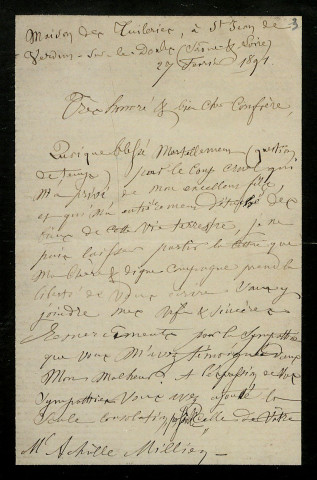 Maison des Tuileries, à St Jean de 3
Verdun-sur-le-Doubs (Saône & Loire)
27 Février 1891.
Très honoré & bien Cher Confrère,
Quoique blessé Mortellement (question
de temps) par le Coup Cruel qui
m'a privé de mon excellent fils,
et qui m'a entièrement détaché des
liens de cette vie terrestre, je ne
puis laisser partir la lettre que
Ma Chère & digne Compagne prend la
liberté de Vous écrire, sans y
joindre mes vifs & sincères
Remerciements pour la Sympathie
que vous m'avez témoignée dans
Mon Malheur. A l'expression de vos
Sympathies Vous avez ajouté la
Seule consolation possible, celle de Votre
Mr Achille Millien -